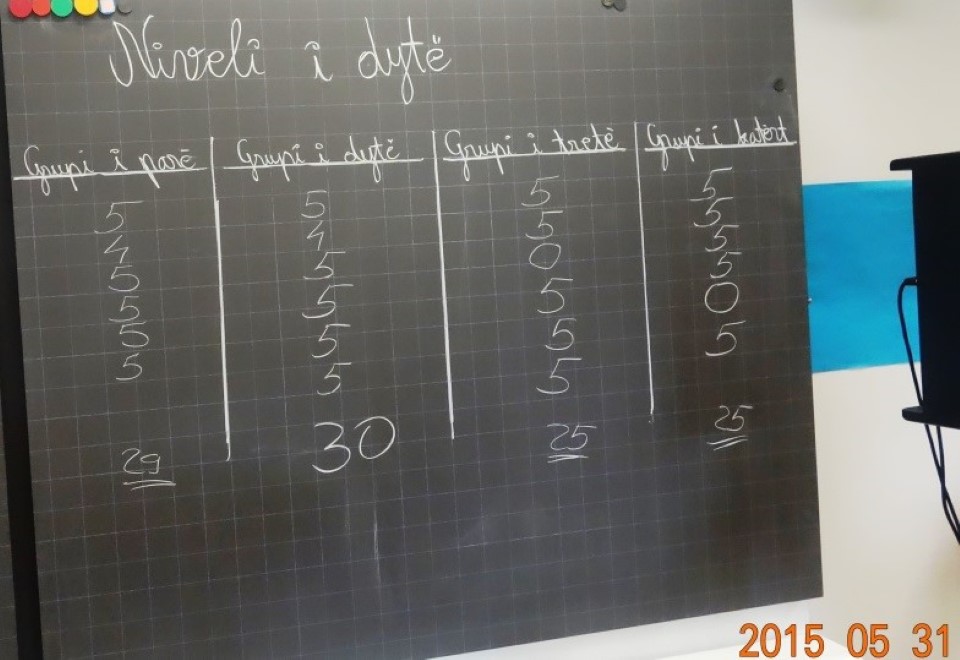 Niveli i dytë
Grupi i parë Grupi i dytë Grupi i tretë Grupi i katërt
5 5 5 5
4 4 5 5
5 5 0 5
5 5 5 5
5 5 5 0
5 5 5 5
29 30 25 25
2015 05 31